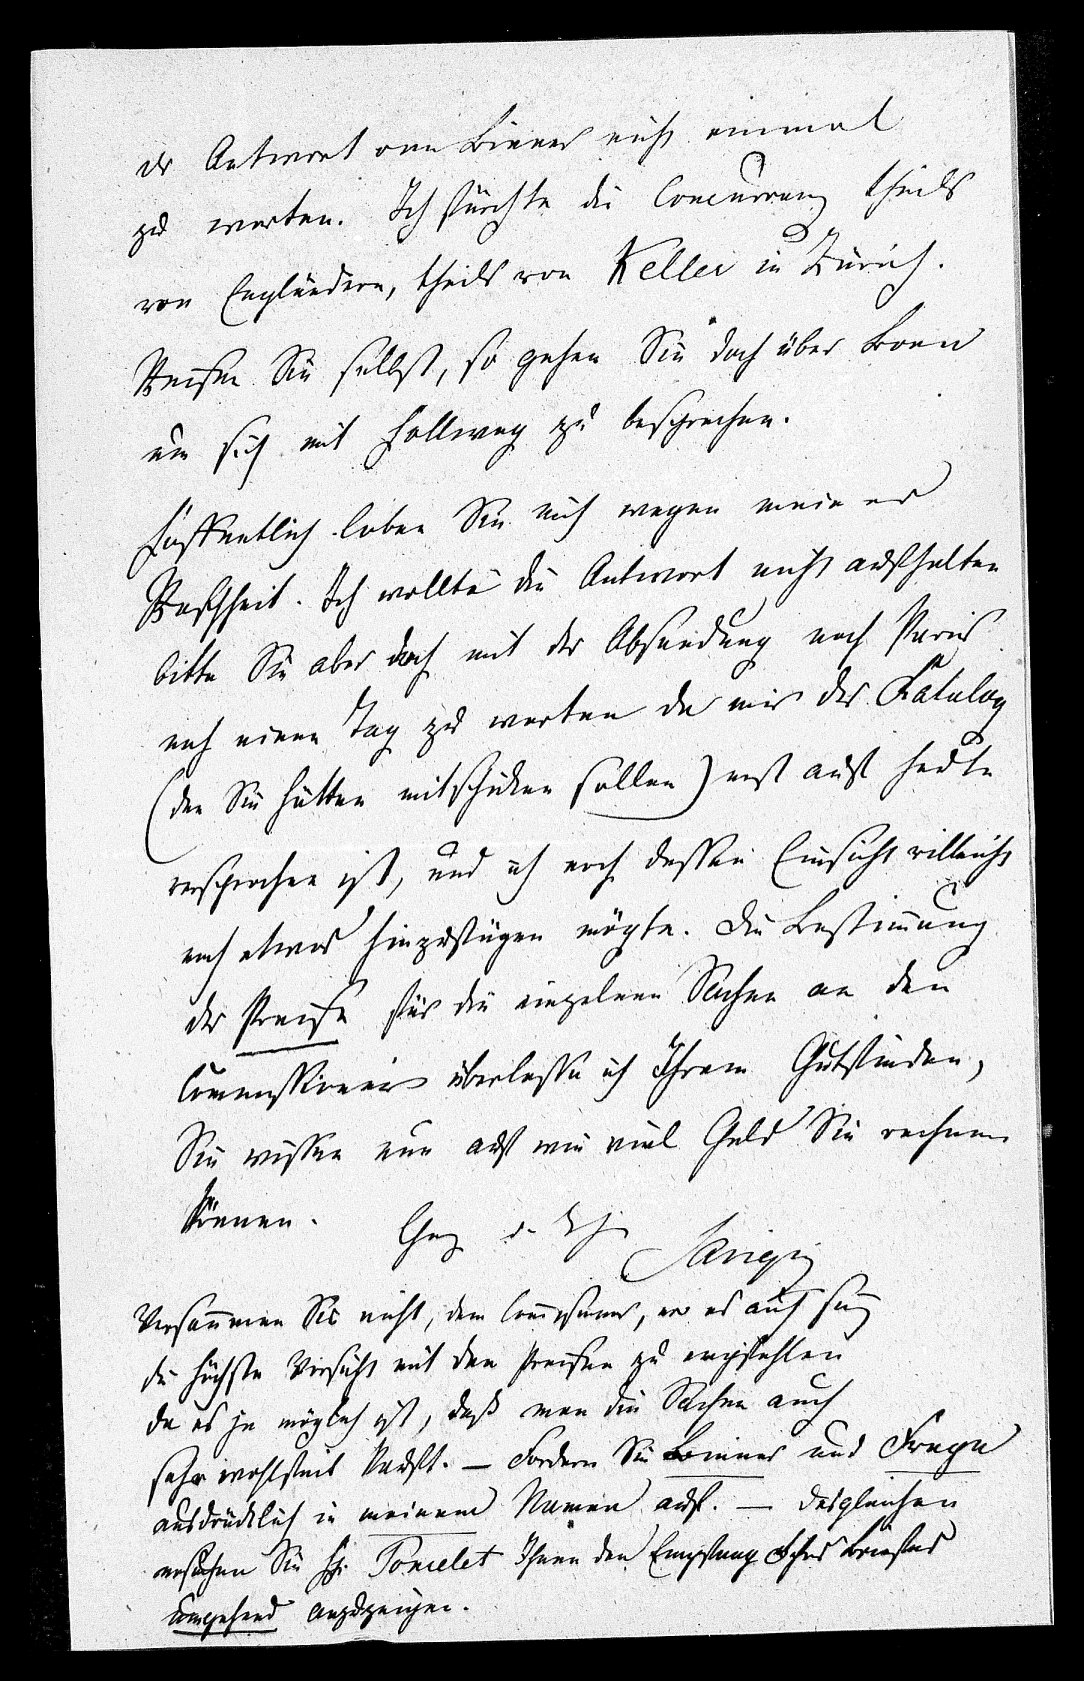 der Antwort von Biener nicht einmal
zu warten. Ich fürchte die Concurrenz theils
von Engländern, theils von Keller in Zürich.
Reisen Sie selbst, so gehen Sie doch über Bonn
um sich mit Hollweg zu besprechen.
Hoffentlich loben Sie mich wegen meiner
Raschheit. Ich wollte die Antwort nicht aufhalten
bitte Sie aber doch mit der Absendung nach Paris
noch einen Tag zu warten da mir der Katalog
(den Sie hätten mitschicken sollen) erst auf heute
versprochen ist, und ich nach dessen Einsicht vielleicht
noch etwas hinzufügen mögte. Die Bestimmung
der Preise für die einzelnen Sachen an den
Commissionair überlasse ich Ihrem Gutfinden,
Sie wissen nun auf wie viel Geld Sie rechnen
können.
Savigny
Versäumen Sie nicht, dem Commissionär, wer es auch sey
die höchste Vorsicht mit den Preisen zu empfehlen
da es ja möglich ist, daß man die Sachen auch
sehr wohlfeil kauft. — Fordern Sie Biener und Freye
ausdrücklich in meinem Namen auf. — desgleichen
ersuchen Sie H. Poncelet Ihnen den Empfang Ihres Briefes
umgehend anzuzeigen.